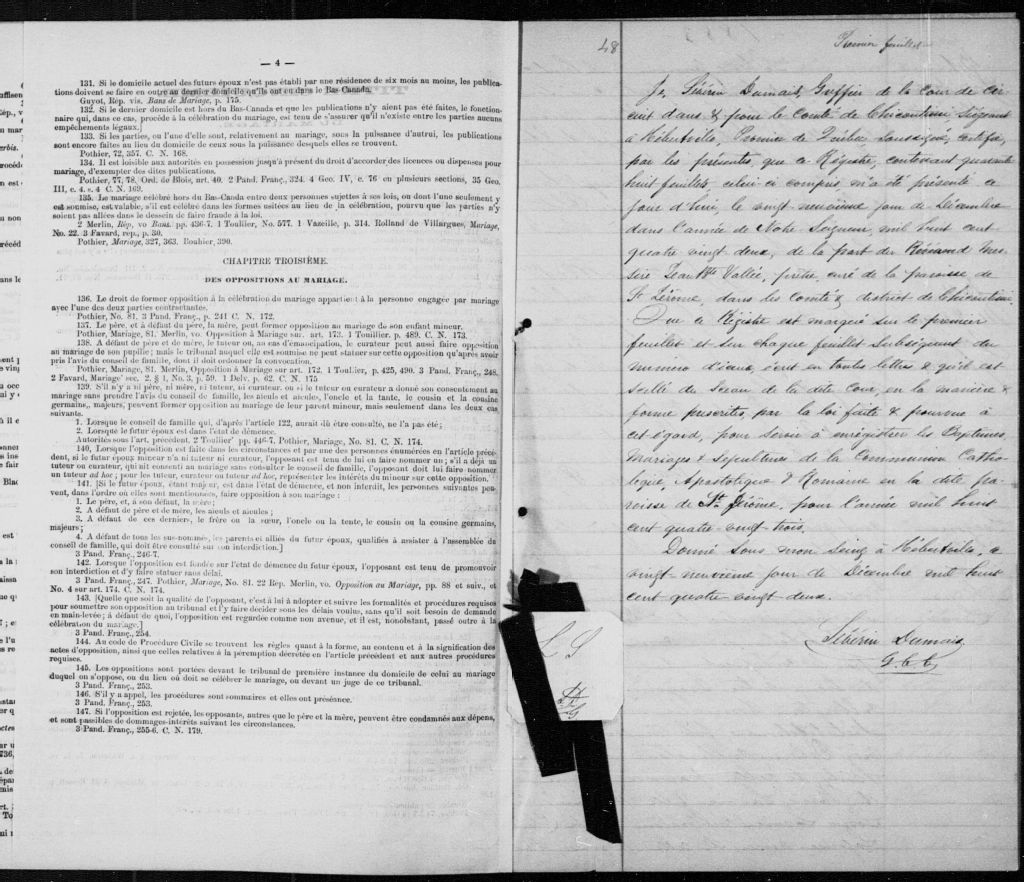 — 4 —
131. Si le domicile actuel des futurs époux n'est pas établi par une résidence de six mois au moins, les publica-
tions doivent se faire en outre au dernier domicile qu'ils ont eu dans le Bas-Canada.
Guyot, Rép. vis. Bans de Mariage, p. 175.
132. Si le dernier domicile est hors du Bas-Canada et que les publications n'y aient pas été faites, le fonction-
naire qui, dans ce cas, procède à la célébration du mariage, est tenu de s'assurer qu'il n'existe entre les parties aucuns
empêchements légaux.]
133. Si les parties, ou l'une d'elle sont, relativement au mariage, sous la puissance d'autrui, les publications
sont encore faites au lieu du domicile de ceux sous la puissance desquels elles se trouvent.
Pothier, 72, 357. C. N. 168.
134. Il est loisible aux autorités en possession jusqu'à présent du droit d'accorder des licences ou dispenses pour
mariage, d'exempter des dites publications.
Pothier, 77, 78, Ord. de Blois, art. 40. 2 Pand. Franç., 324. 4 Geo. IV, c. 76 en plusieurs sections, 35 Geo.
III, c. 4. s. 4 C. N. 169.
135. Le mariage célébré hors du Bas-Canda entre deux personnes sujettes à ses lois, ou dont l'une seulement y
est soumise, est valable, s'il est célébré dans les formes usitées au lieu de la célébration, pourvu que les parties n'y
soient pas allées dans le dessein de faire fraude à la loi.
2 Merlin, Rép, vo Bans, pp. 436-7. 1 Toulier, No. 577. 1 Vazeille, p. 314. Rolland de Villargues, Mariage,
No. 22. 3 Favard, rep., p. 30.
Pothier, Mariage, 327, 363. Bouhier, 390.
CHAPITRE TROISIÈME.
DES OPPOSITIONS AU MARIAGE.
136. Le droit de former opposition à la célébration du mariage appartient à la personne engagée par mariage
avec l'une des deux parties contractantes.
Pothier, No. 81. 3 Pand. Franç., p. 241 C. N. 172.
137. Le père, et à défaut du père, la mère, peut former opposition au mariage de son enfant mineur.
Pothier, Mariage, 81. Merlin, vo. Opposition à Mariage sur. art. 173. 1 Toullier, p. 489. C. N. 173.
138. A défaut de père et de mère, le tuteur ou, au cas d'émancipation, le curateur peut aussi faire opposition
au mariage de son pupille; mais le tribunal auquel elle est soumise ne peut statuer sur cette opposition qu'après avoir
pris l'avis du conseil de famille, dont il doit ordonner la convocation.
Pothier, Mariage, 81. Merlin, Opposition à Mariage sur art. 172. 1 Toulier, p. 425, 490. 3 Pand. Franç., 248.
2 Favard, Mariage sec. 2. § 1, No. 3, p. 59. 1 Delv. p. 62. C. N. 175
139. S'il n'y a ni père, ni mère, ni tuteur, ni curateur, ou si le tuteur ou curateur a donné son consentement au
mariage sans prendre l'avis du conseil de famille, les aïeuls et aïeules, l'oncle et la tante, le cousin et la cousine
germains, majeurs, peuvent former opposition au mariage de leur parent mineur, mais seulement dans les deux cas
suivants.
1. Lorsque le conseil de famille qui, d'après l'article 122, aurait dû être consulté, ne l'a pas été;
2. Lorsque le futur époux est dans l'état de démence.
Autorités sous l'art. précédent. 2 Toullier' pp. 446-7. Pothier, Mariage, No. 81. C. N. 174.
140. Lorsque l'opposition est faite dans les circonstances et par une des personnes énumérées en l'article précé-
dent, si le futur époux mineur n'a ni tuteur ni curateur, l'opposant est tenu de lui en faire nommer un; s'il a déjà un
tuteur ou curateur, qui ait consenti au mariage sans consulter le conseil de famille, l'opposant doit lui faire nommer
un tuteur ad hoc; pour les tuteur, curateur ou tuteur ad hoc, représenter les intérêts du mineur sur cette opposition.
141. [Si le futur époux, étant majeur, est dans l'état de démence, et non interdit, les personnes suivantes peu-
vent, dans l'ordre où elles sont mentionnées, faire opposition à son mariage:
1. Le père, et, à son défaut, la mère;
2. A défaut de père et de mère, les aïeuls et aïeules;
3. A défaut de ces derniers, le frère ou la sœur, l'oncle ou la tante, le cousin ou la cousine germains,
majeurs;
4. A défaut de tous les sus-nommés, les parents et alliés du futur époux, qualifiés à assister à l'assemblée du
conseil de famille, qui doit être consulté sur son interdiction.]
3 Pand. Franç., 246-7.
142. Lorsque l'opposition est fondée sur l'état de démence du futur époux, l'opposant est tenu de promouvoir
son interdiction et d'y faire statuer sans délai.
3 Pand. Franç., 247. Pothier, Mariage, No. 81. 22 Rep. Merlin, vo. Opposition au Mariage, pp. 88 et suiv., et
No. 4 sur art. 174. C. N. 174.
143. [Quelle que soit la qualité de l'opposant, c'est à lui à adopter et suivre les formalités et procédures requises
pour soumettre son opposition au tribunal et l'y faire décider sous les délais voulus, sans qu'il soit besoin de demande
en main-levée; à défaut de quoi, l'opposition est regardée comme non avenue, et il est, nonobstant, passé outre à la
célébration du mariage.]
3 Pand. Franç., 254.
144. Au code de Procédure Civile se trouvent les règles quant à la forme, au contenu et à la signification des
actes d'opposition, ainsi que celles relatives à la péremption décrétée en l'article précédent et aux autres procédures
requises.
145. Les oppositions sont portées devant le tribunal de première instance du domicile de celui au mariage
duquel on s'oppose, ou du lieu où doit se célébrer le mariage, ou devant un juge de ce tribunal.
3 Pand. Franç., 253.
146. S'il y a appel, les procédures sont sommaires et elles ont préséance.
3 Pand. Franç., 253.
147. Si l'opposition est rejetée, les opposants, autres que le père et la mère, peuvent être condamnés aux dépens,
et sont passibles de dommages-intérêts suivant les circonstances.
3 Pand. Franç., 255-6. C. N. 179.
48
Premier feuillet
Je, Sébérin Dumais, Greffier de la Cour de cir
cuit dans & pour le Comté de Chicoutimi, Siégeant
à Hébertville, Province de Québec, soussigné, certifie,
par les présentes, que ce Régistre, contenant quarante
huit feuillets, celui-ci compris, m'a été présenté ce
jour d'hui, le vingt-neuvième jour de Décembre
dans l'année de Notre Seigneur, mil huit cent
quatre vingt-deux, de la part du Révérend Mes
sire Jean Bte Vallée, prêtre, curé de la paroisse de
St Jérôme, dans les Comté & district de Chicoutimi,
Que ce Régistre est marqué sur le premier
feuillet et sur chaque feuillet subséquent du
numéro d'iceux, écrit en toutes lettres & qu'il est
scellé du Sceau de la dite Cour, en la manière &
forme prescrites, par la loi faite & pourvue à
cet égard, pour servir à enrégistrer les Baptêmes,
Mariages & Sépultures de la Communion Catho
logie, Apostolique & Romaine en la dite pa-
roisse de St. Jérôme, pour l'année mil huit
cent quatre-vingt-trois.
Donné sous mon Seing à Hébertville, ce
vingt-neuvième jour de Décembre mil huit
cent quatre vingt deux.
Sébérin Dumais
G.C.C.
L S